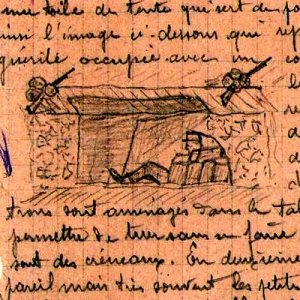 une toile de tente qui sert de po
ainsi l'image ci-dessous qui rep
guérité occupée avec un co
trous sont aménagés dans le tal
permettre de tirer sans en faire
sont des créneaux. On
pareil mais très souvent les petits